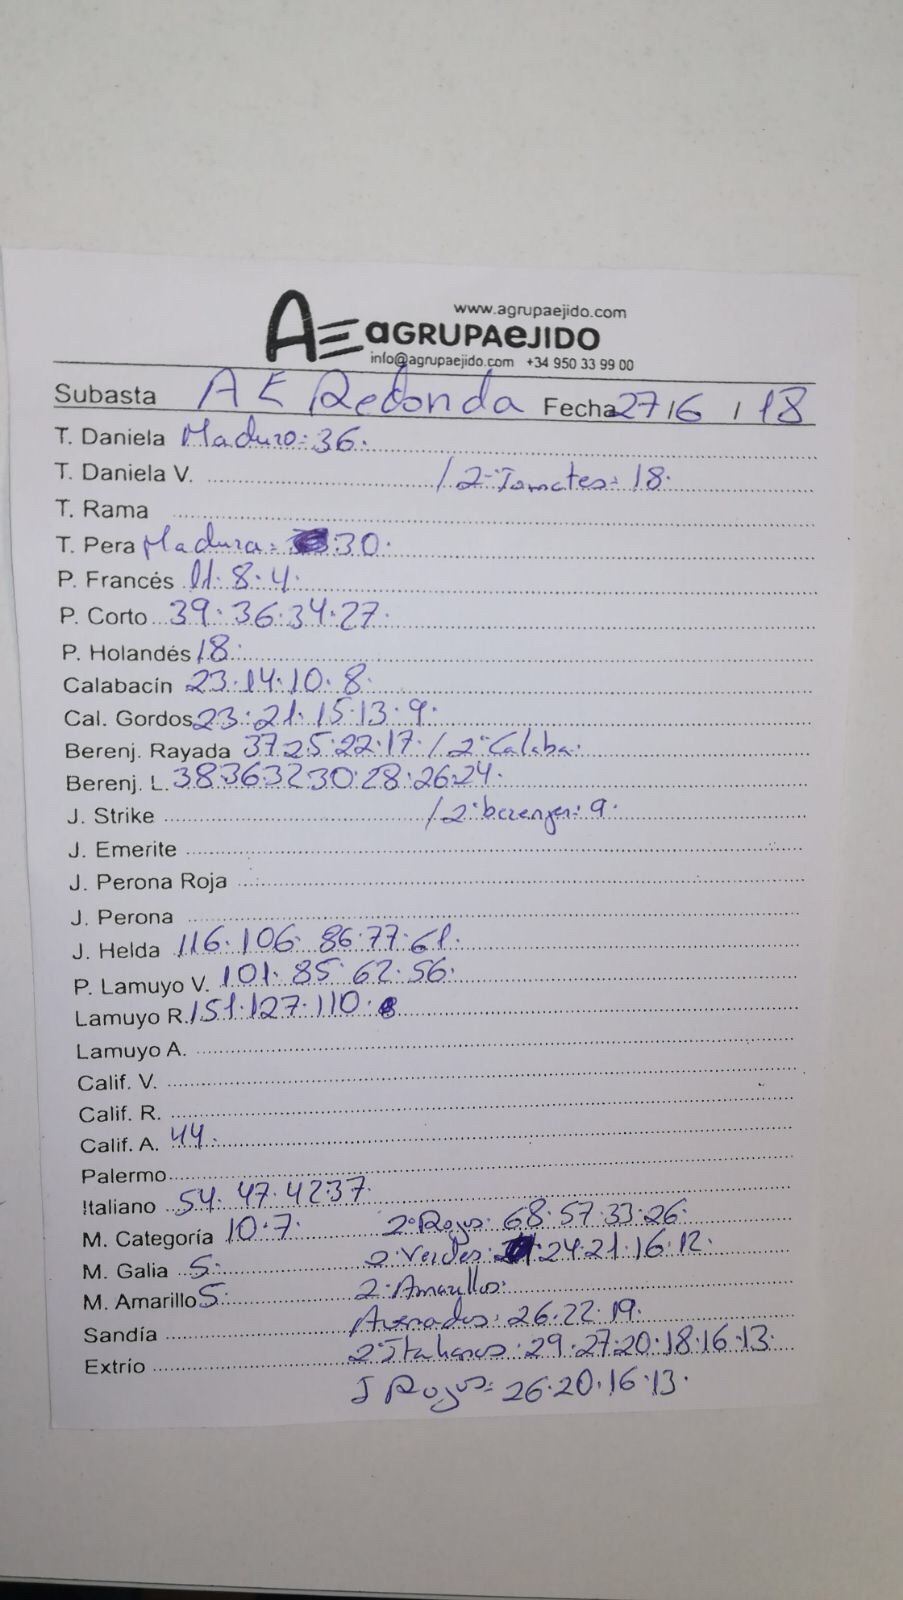 www.agrupaejido.com
AE aGRUPAeJIDO
info@agrupaejido.com +34 950 33 99 00
Subasta A E Redonda Fecha 27/6/18
T. Daniela Maduro: 36.
T. Daniela V. / 2ª Tomates: 18.
T. Rama
T. Pera Madura: 30.
P. Francés 11. 8. 4.
P. Corto 39. 36. 34. 27.
P. Holandés 18.
Calabacín 23. 14. 10. 8.
Cal. Gordos 23. 21. 15. 13. 9.
Berenj. Rayada 37. 25. 22. 17. / 2ª Calaba:
Berenj. L. 38. 36. 32. 30. 28. 26. 24.
J. Strike / 2ª berenjen: 9.
J. Emerite
J. Perona Roja
J. Perona
J. Helda 116. 106. 86. 77. 61.
P. Lamuyo V. 101. 85. 62. 56.
Lamuyo R. 151. 127. 110.
Lamuyo A.
Calif. V.
Calif. R.
Calif. A. 44.
Palermo
Italiano 54. 47. 42. 37.
M. Categoría 10. 7. 2ª Rojos: 68. 57. 33. 26.
M. Galia 5. 2 Verdes: 24. 21. 16. 12.
M. Amarillo 5. 2ª Amarillos:
Sandía Asurados: 26. 22. 19.
Extrío 2ª Italianos: 29. 27. 20. 18. 16. 13.
J Rojos: 26. 20. 16. 13.